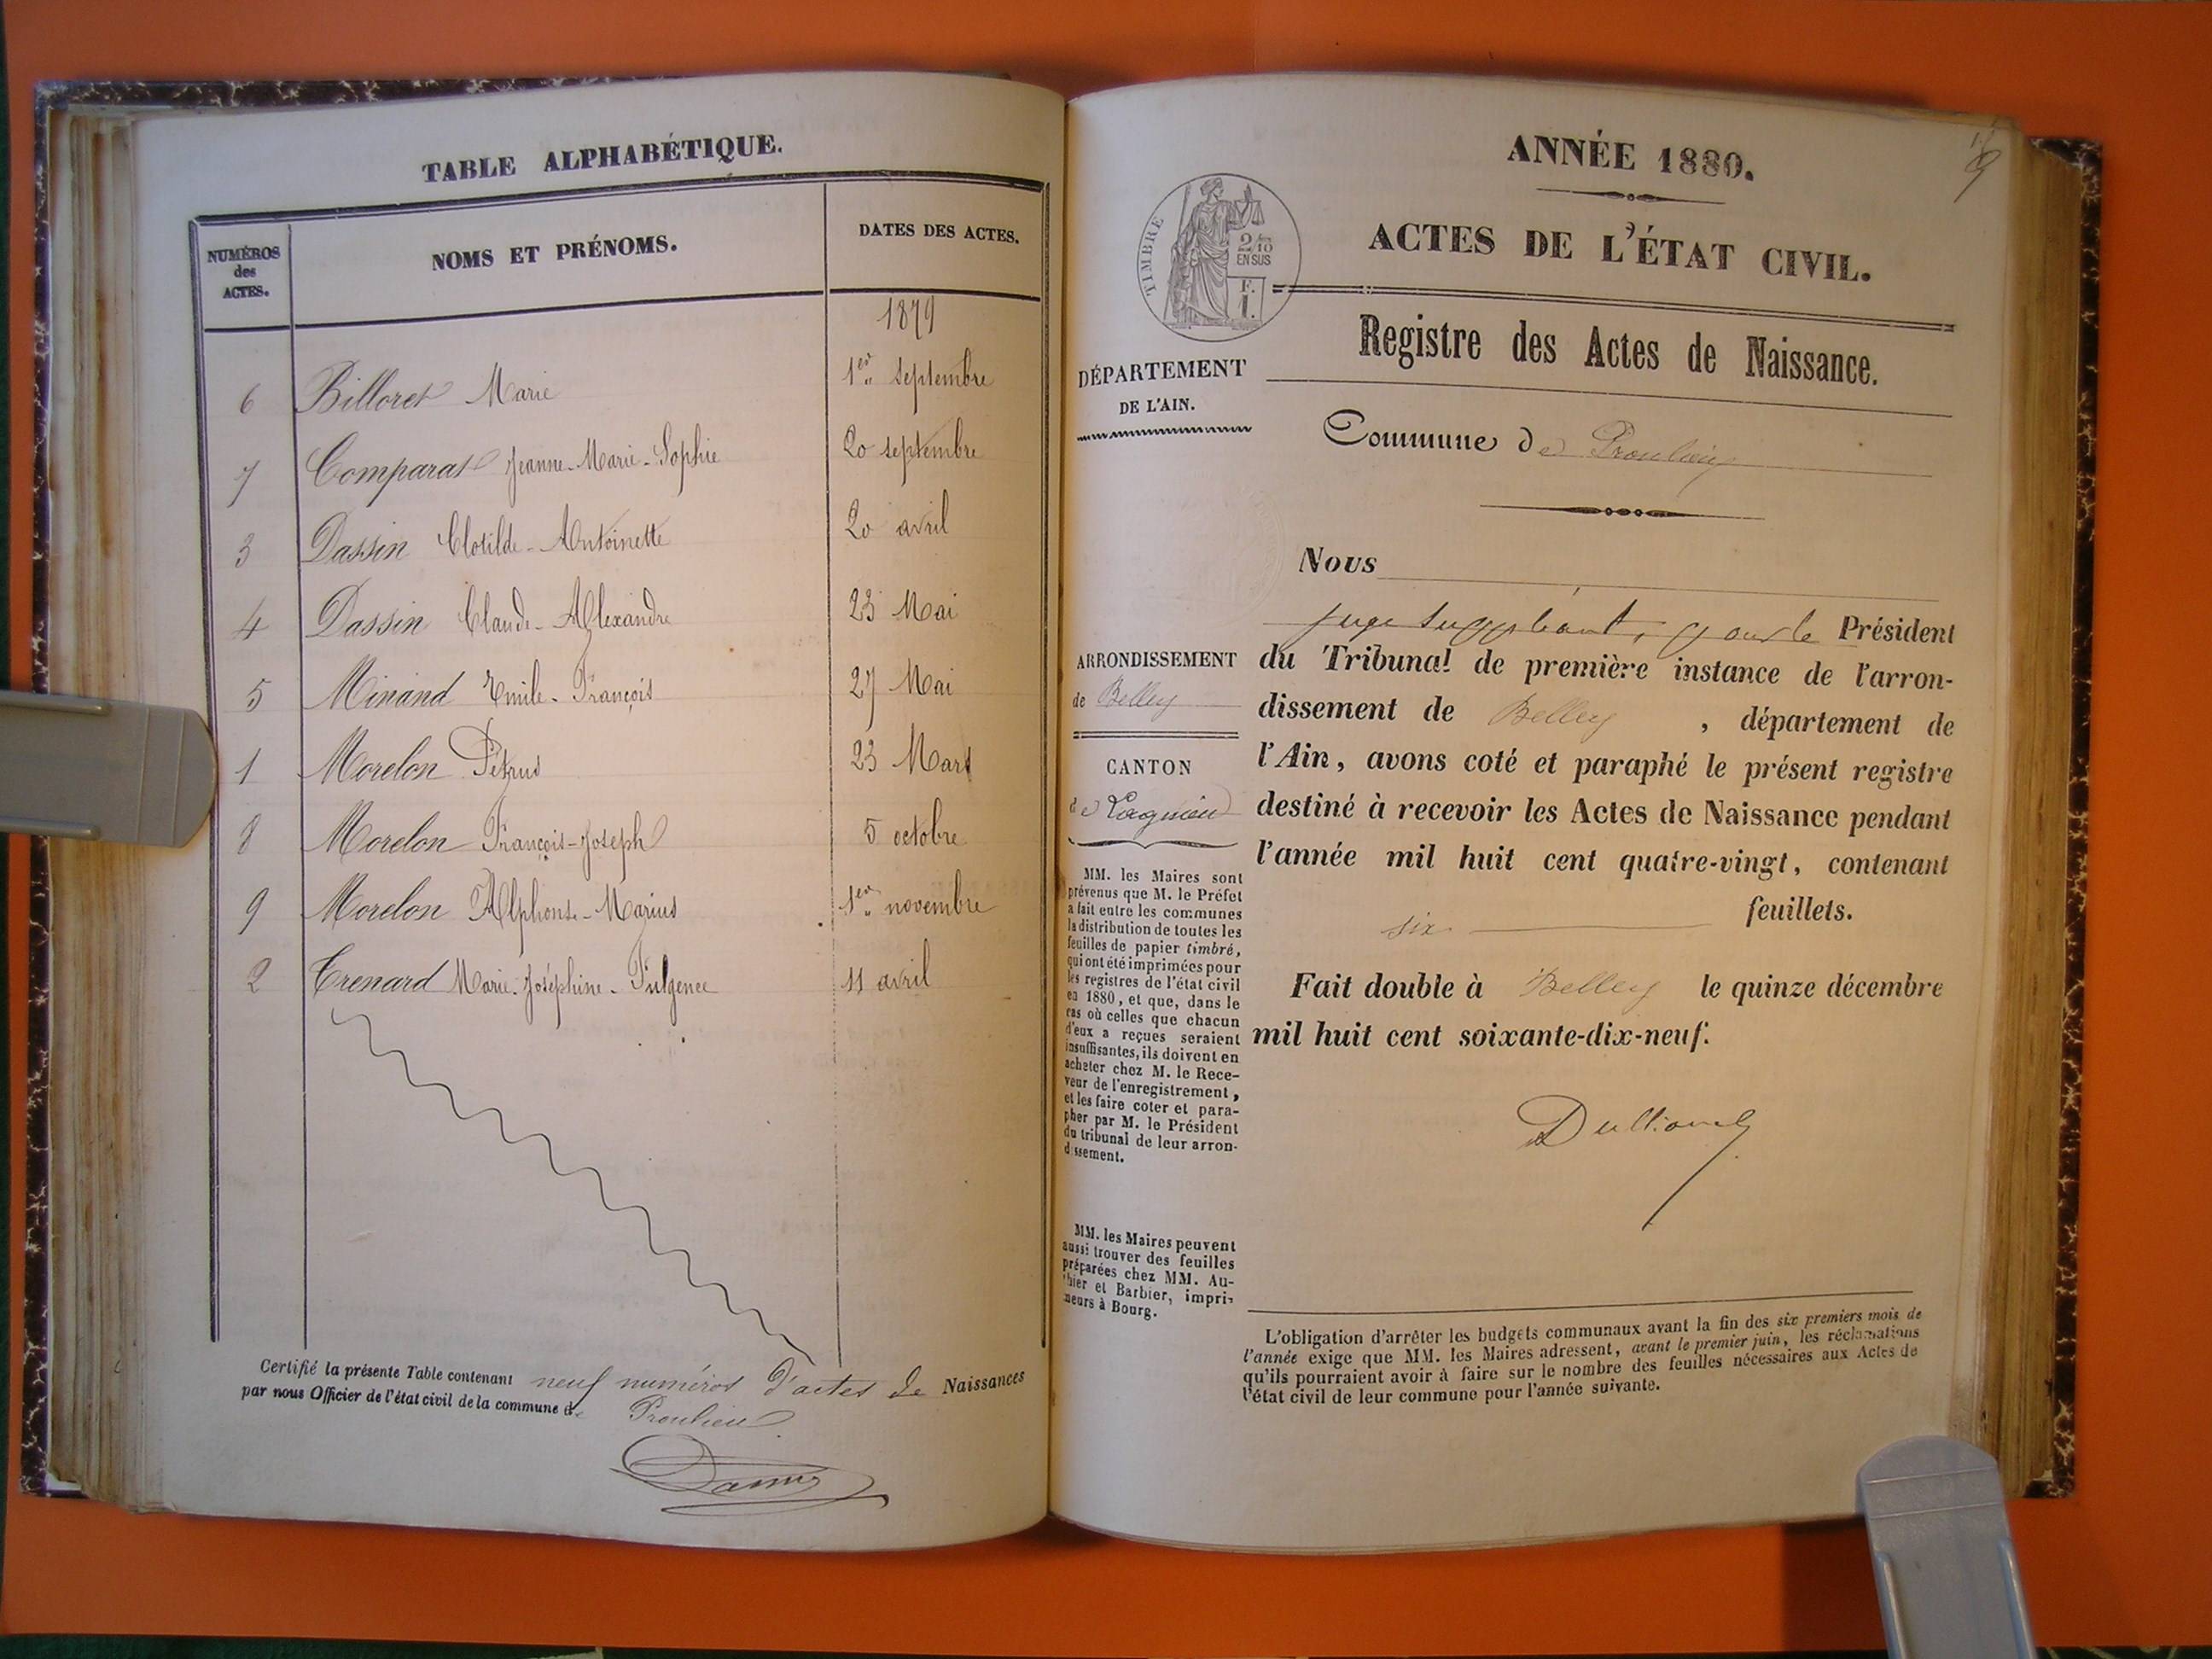 TABLE ALPHABÉTIQUE.
NUMÉROS des ACTES. NOMS ET PRÉNOMS. DATES DES ACTES.
1879
6 Billoret Marie 1er septembre
7 Comparat Jeanne-Marie-Sophie 20 septembre
3 Dassin Clotilde-Antoinette 20 avril
4 Dassin Claude-Alexandre 23 Mai
5 Minand Emile-François 27 Mai
1 Morelon Pétrus 23 Mars
8 Morelon François-Joseph 5 octobre
9 Morelon Alphonse-Marius 1er novembre
2 Trenard Marie-Joséphine-Fulgence 11 avril
Certifié la présente Table contenant neuf numéros d'actes de Naissances
par nous Officier de l'état civil de la commune de Proulieu
ANNÉE 1880.
ACTES DE L'ÉTAT CIVIL.
TIMBRE
2/10
EN SUS
F.
1.
Registre des Actes de Naissance.
DÉPARTEMENT
DE L'AIN.
Commune de Proulieu
ARRONDISSEMENT
de Belley
CANTON
de Lagnieu
MM. les Maires sont
prévenus que M. le Préfet
a fait entre les communes
la distribution de toutes les
feuilles de papier timbré,
qui ont été imprimées pour
les registres de l'état civil
en 1880, et que, dans le
cas où celles que chacun
d'eux a reçues seraient
insuffisantes, ils doivent en
acheter chez M. le Rece-
veur de l'enregistrement,
et les faire coter et para-
pher par M. le Président
du tribunal de leur arron-
dissement.
MM. les Maires peuvent
aussi trouver des feuilles
préparées chez MM. Au-
thier et Barbier, impri-
meurs à Bourg.
Nous
juge suppléant, pour le Président
du Tribunal de première instance de l'arron-
dissement de Belley , département de
l'Ain, avons coté et paraphé le présent registre
destiné à recevoir les Actes de Naissance pendant
l'année mil huit cent quatre-vingt, contenant
six feuillets.
Fait double à Belley le quinze décembre
mil huit cent soixante-dix-neuf.
L'obligation d'arrêter les budgets communaux avant la fin des six premiers mois de
l'année exige que MM. les Maires adressent, avant le premier juin, les réclamations
qu'ils pourraient avoir à faire sur le nombre des feuilles nécessaires aux Actes de
l'état civil de leur commune pour l'année suivante.